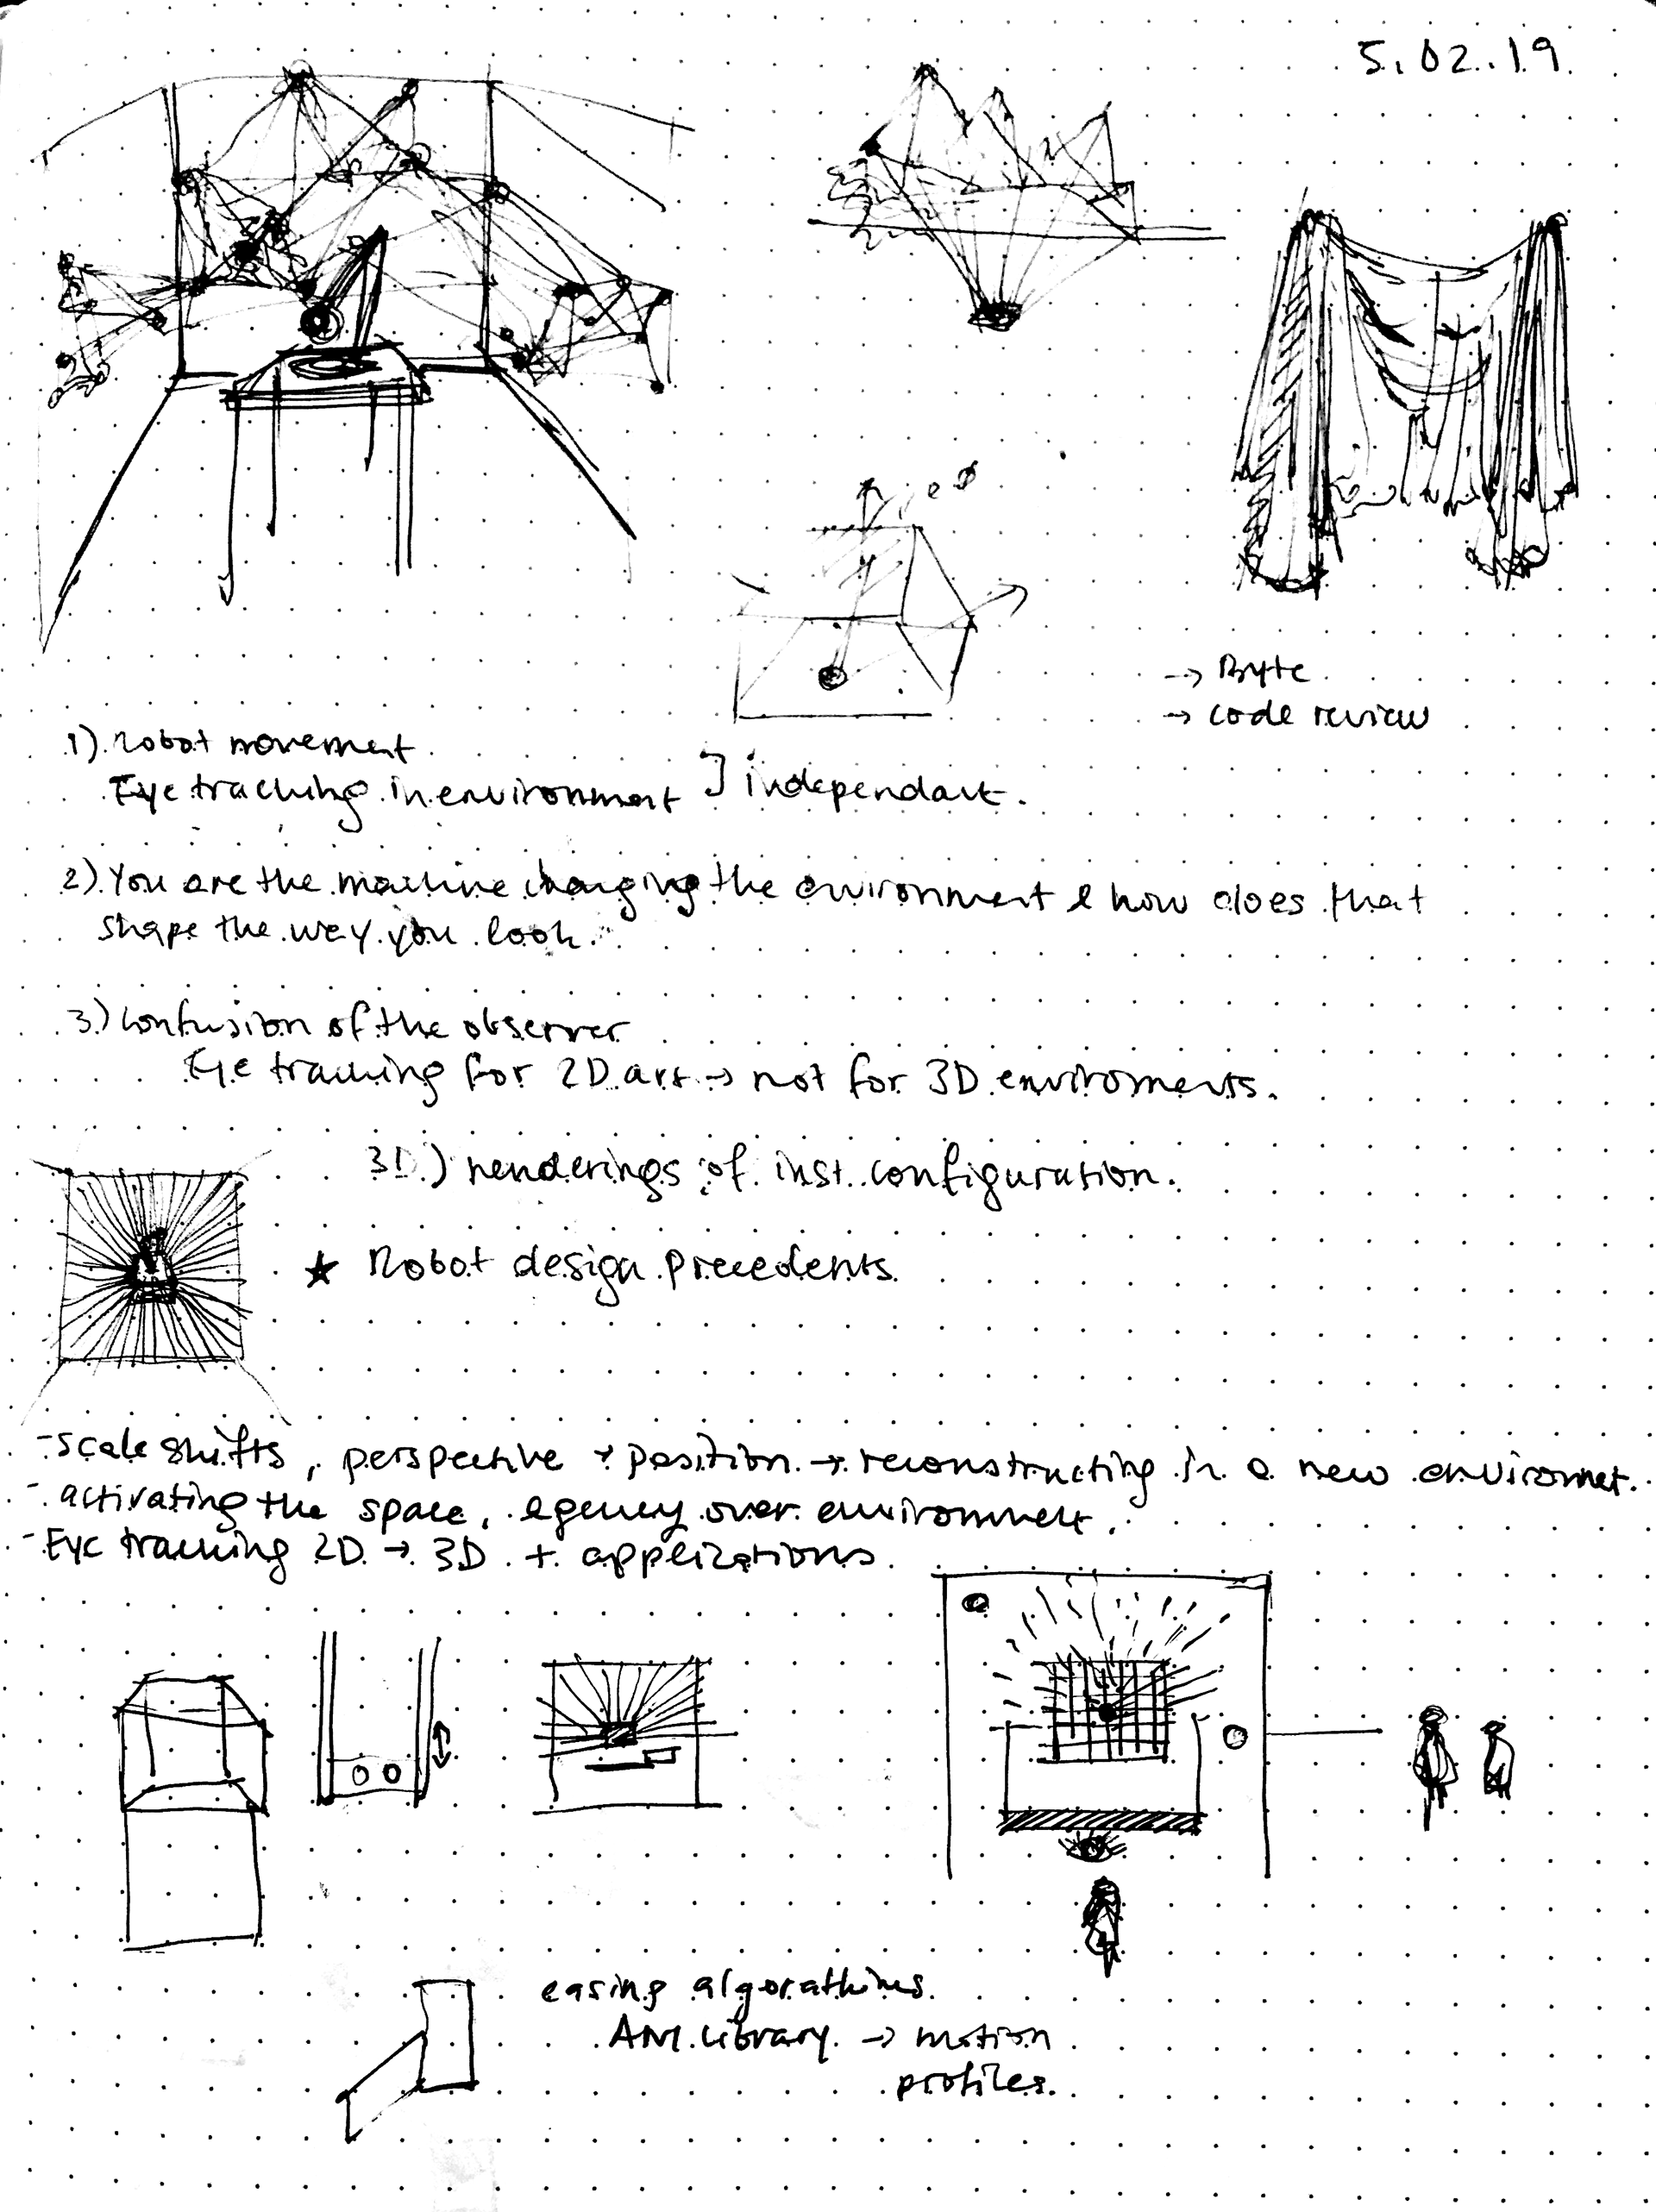 5.02.19
→ Byte
→ code review
1) Robot movement
Eye tracking in environment ] independant.
2) You are the machine changing the environment & how does that
shape the way you look.
3.) Confusion of the observer
Eye tracking for 2D art → not for 3D enviroments.
3D) renderings of inst. configuration.
★ Robot design precedents
- scale shifts, perspective + position → reconstructing in a new enviromet.
- activating the space, agency over environment.
- Eye tracking 2D → 3D + applications
easing algorathims
Library → motion
profiles.